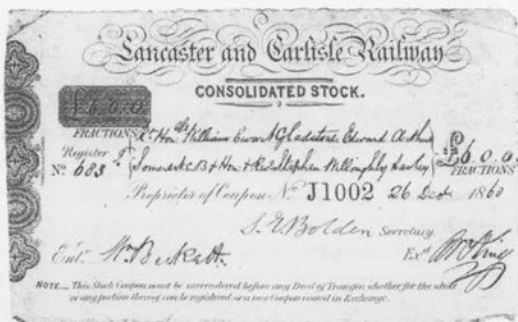 Lancaster and Carlisle Railway
CONSOLIDATED STOCK.
£6.0.0
FRACTIONS
Rt Honble William Ewart Gladstone Edward
Register
No 683
& Honble & Revd Stephen Willoughby Lawley
£6.0.0.
FRACTIONS
Proprietor of Coupon No J1002 26 Decr 1860
S. E. Bolden Secretary.
Entd. Wm Beckett.
Exd.
NOTE.__ This Stock Coupon must be surrendered before any Deed of Transfer, whether for the whole
or any portion thereof can be registered, or a new Coupon issued in Exchange.